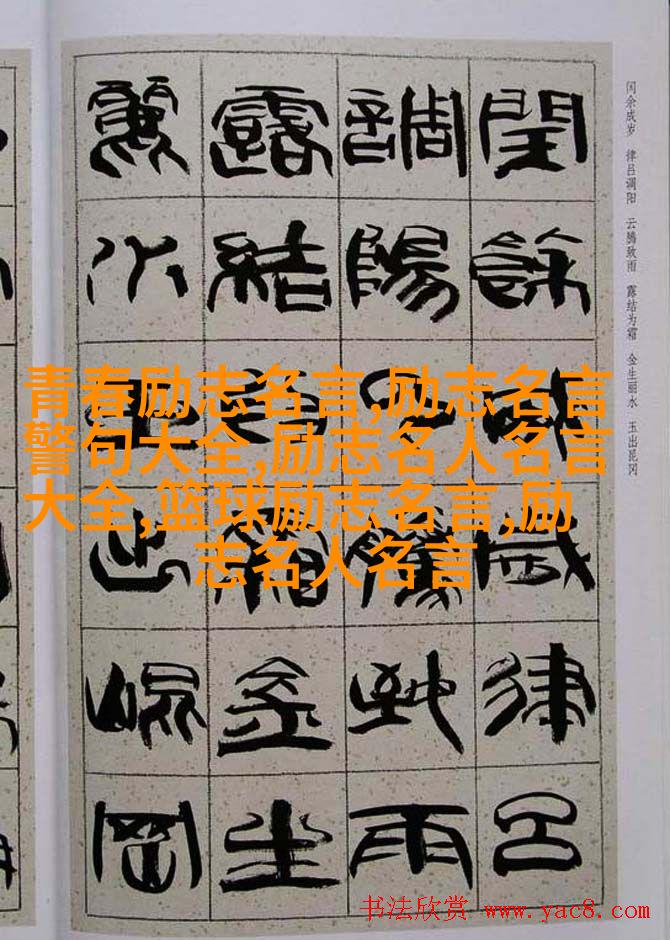 閏餘成歲律呂
調陽云騰致雨
露結為霜金生
麗水玉出崐岡
闰余成岁 律吕调阳 云腾致雨 露结为霜 金生丽水 玉出昆冈
青春励志名言,励志名言
警句大全,励志名人名言
大全,篮球励志名言,励
志名人名言
书法欣赏 www.yac8.com